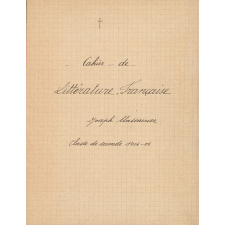 - Cahier - de
Littérature Française
Joseph
Classe de seconde